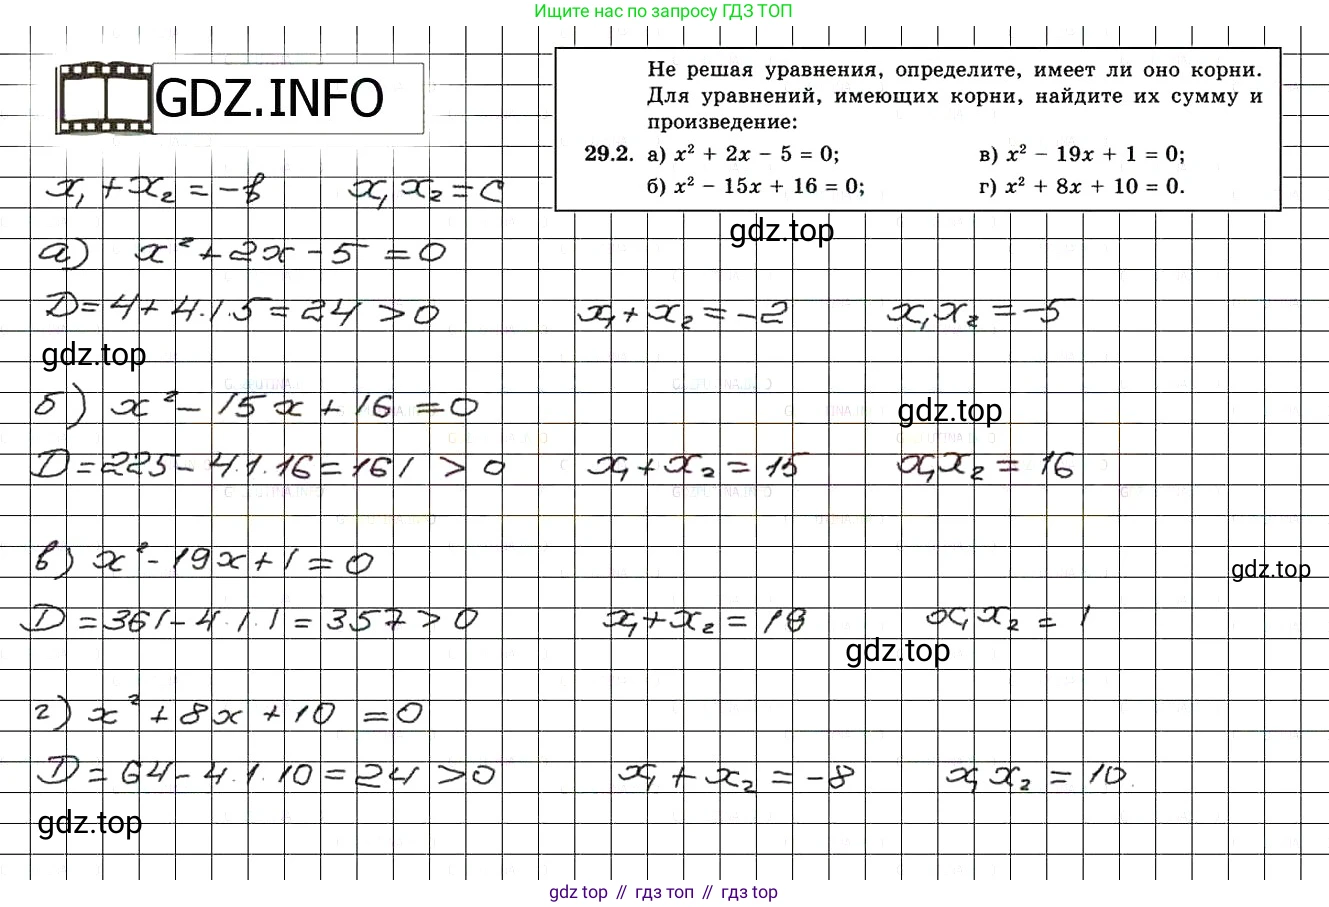 Ищите нас по запросу ГДЗ ТОП
GDZ.INFO
Не решая уравнения, определите, имеет ли оно корни.
Для уравнений, имеющих корни, найдите их сумму и
произведение:
29.2. а) x² + 2x − 5 = 0; в) x² − 19x + 1 = 0;
б) x² − 15x + 16 = 0; г) x² + 8x + 10 = 0.
x₁ + x₂ = −b x₁ x₂ = c
gdz.top
а) x² + 2x − 5 = 0
D = 4 + 4·1·5 = 24 > 0 x₁ + x₂ = −2 x₁ x₂ = −5
gdz.top
б) x² − 15x + 16 = 0
gdz.top
D = 225 − 4·1·16 = 161 > 0 x₁ + x₂ = 15 x₁ x₂ = 16
в) x² − 19x + 1 = 0
gdz.top
D = 361 − 4·1·1 = 357 > 0 x₁ + x₂ = 19 x₁ x₂ = 1
gdz.top
г) x² + 8x + 10 = 0
D = 64 − 4·1·10 = 24 > 0 x₁ + x₂ = −8 x₁ x₂ = 10
gdz.top
gdz top // гдз топ // гдз top